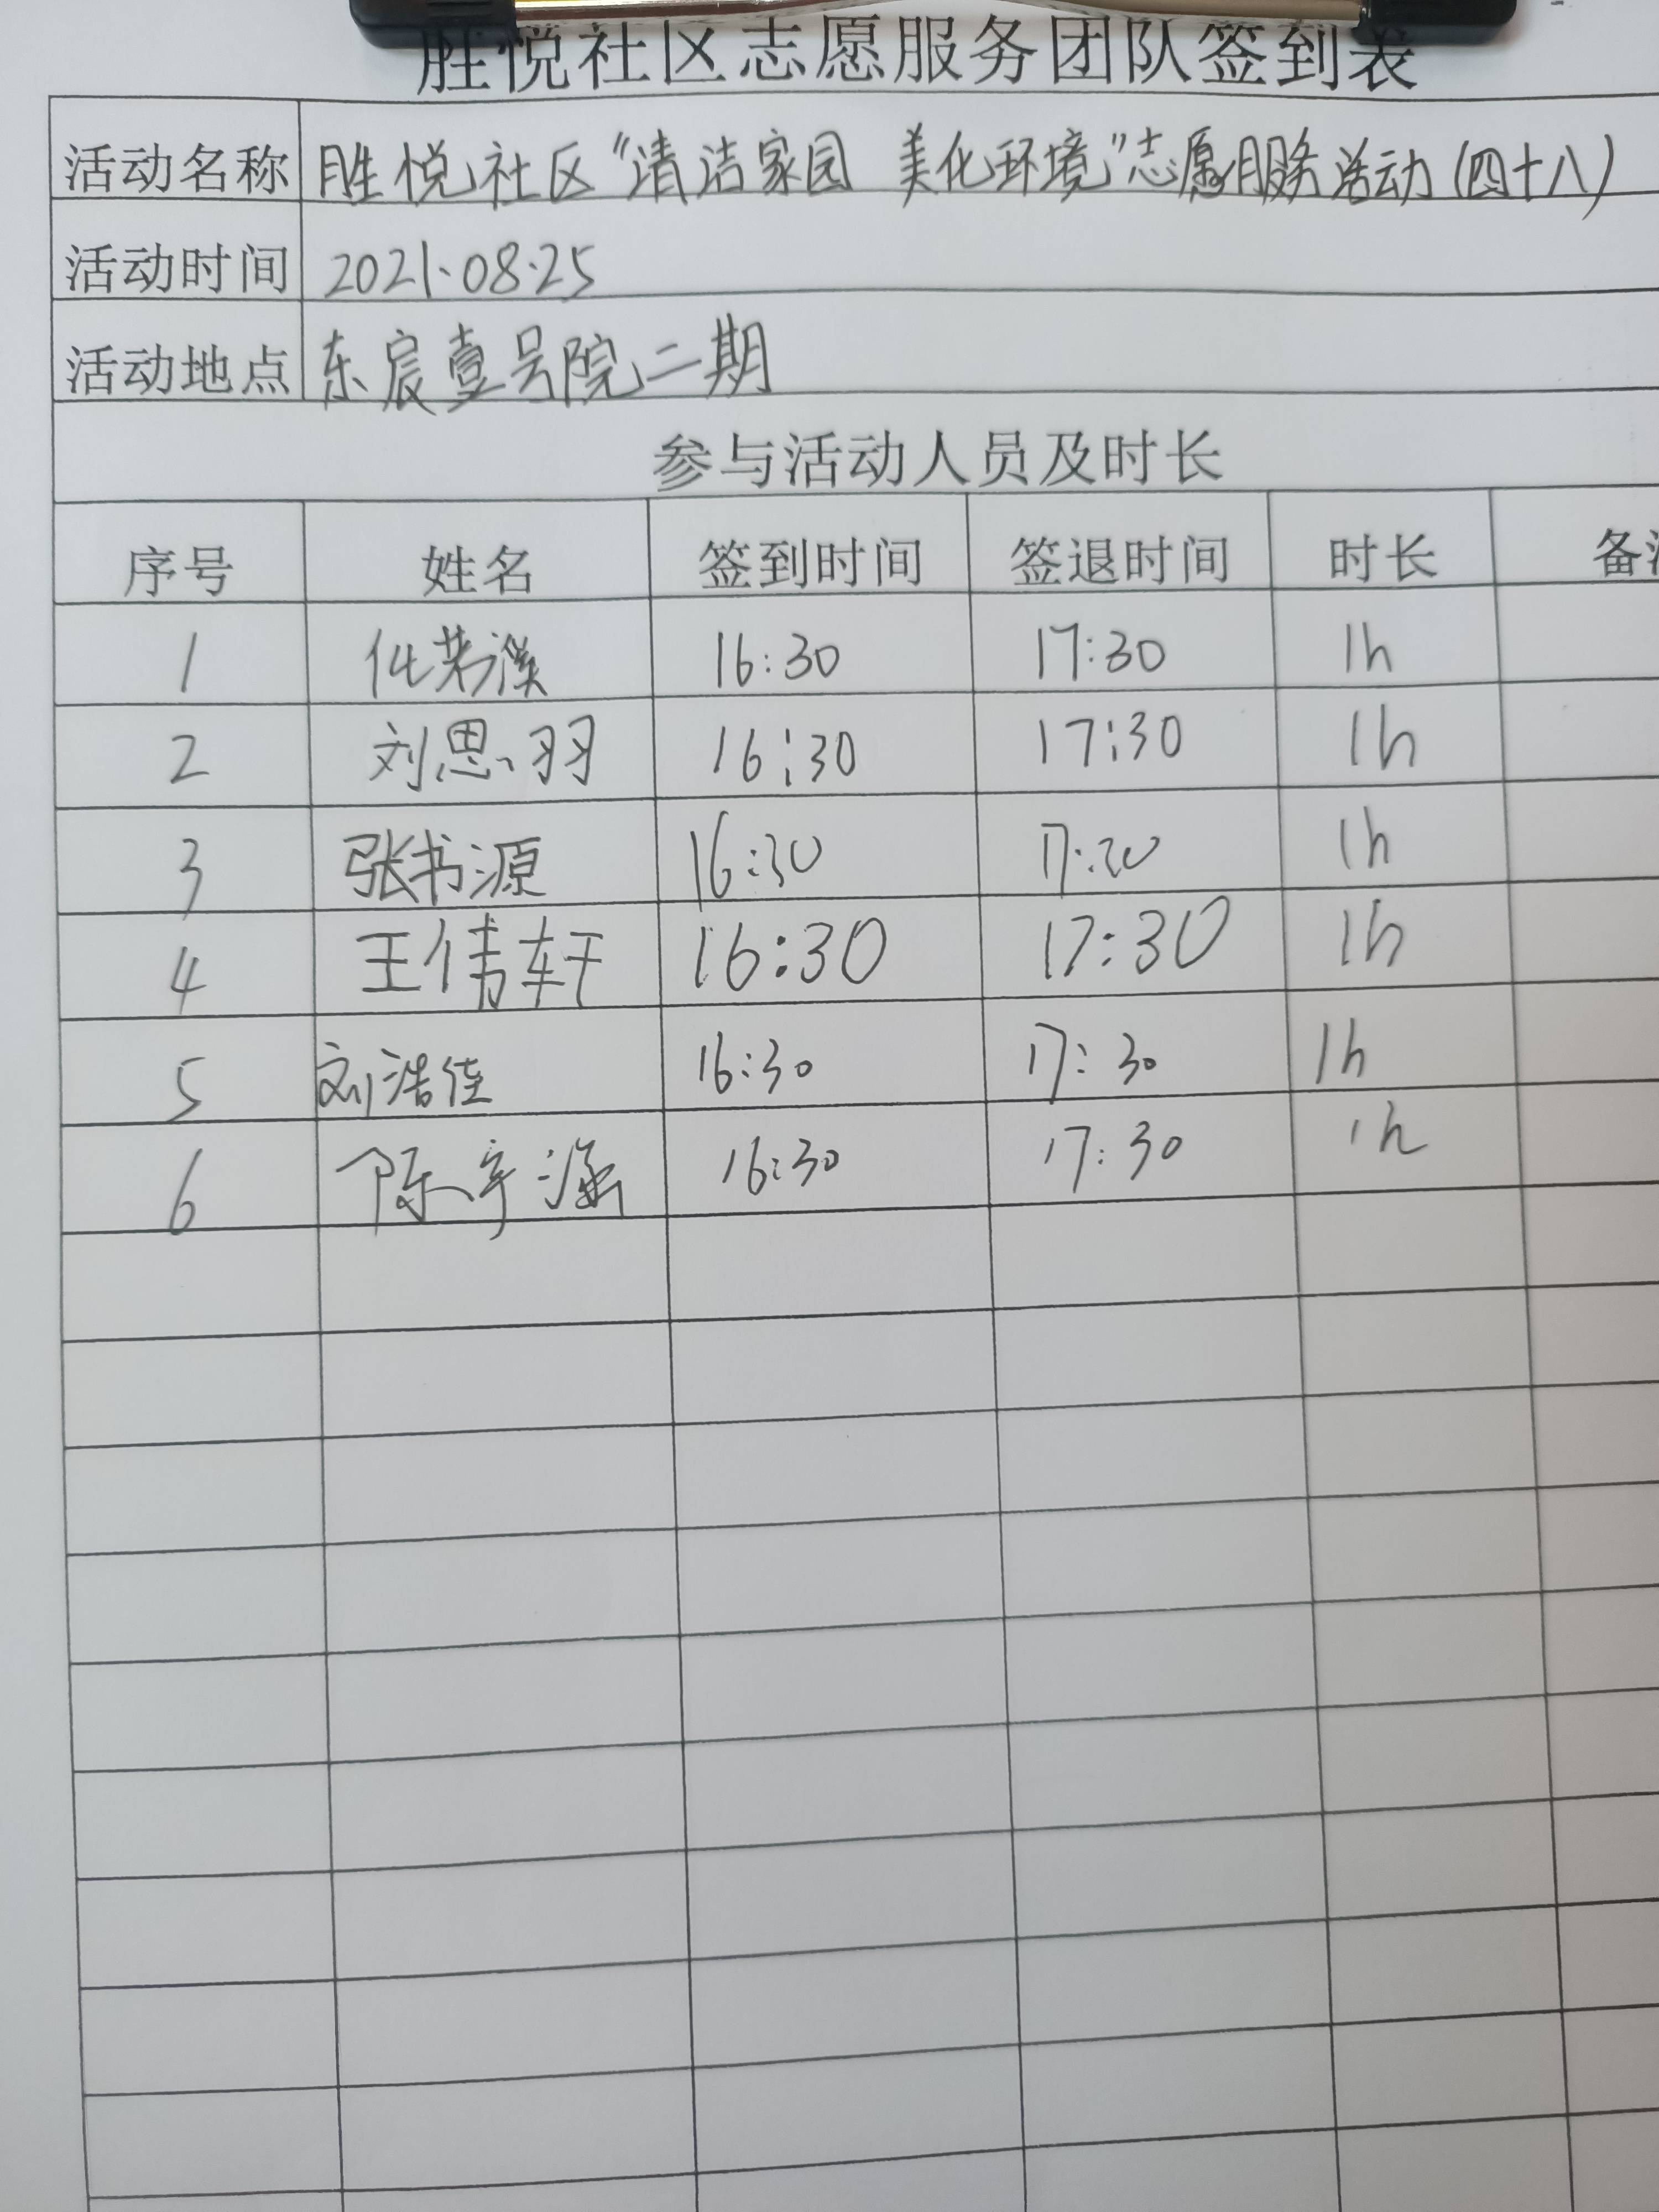 胜悦社区志愿服务团队签到表
活动名称 胜悦社区“清洁家园 美化环境”志愿服务活动(四十八)
活动时间 2021.08.25
活动地点 东宸壹号院二期
参与活动人员及时长
序号 姓名 签到时间 签退时间 时长 备
1 16:30 17:30 1h
2 刘思羽 16:30 17:30 1h
3 张书源 16:30 17:30 1h
4 王伟轩 16:30 17:30 1h
5 刘浩佳 16:30 17:30 1h
6 陈宇涵 16:30 17:30 1h